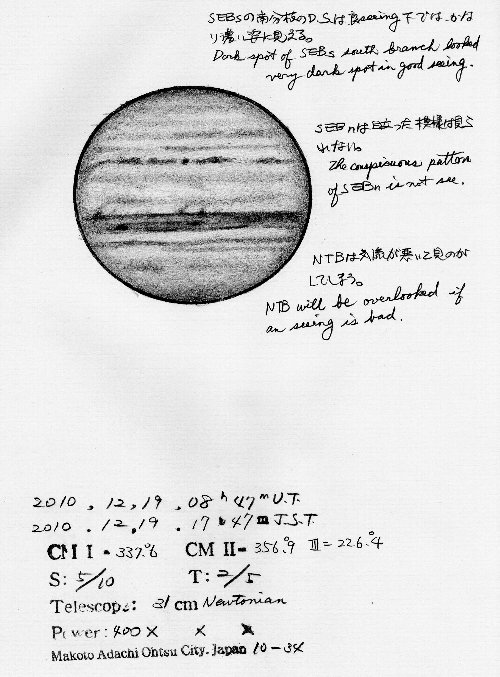 SEBsの南分枝のD.Sは良seeing下では、かな
り濃い姿に見える。
Dark spot of SEBs south branch looked
very dark spot in good seeing.
SEBnは目立った模様は見ら
れない。
The conspicuous pattern
of SEBn is not see.
NTBは気流が悪いと見のが
してしまう。
NTB will be overlooked if
an seeing is bad.
2010 . 12 . 19 . 08h 47m U.T.
2010 . 12 . 19 . 17h 47m J.S.T.
CM I - 337.°6 CM II - 356.°9 III = 226.°4
S: 5/10 T: 2/5
Telescope: 31 cm Newtonian
Power: 400× × ×
Makoto Adachi Ohtsu City. Japan 10-34